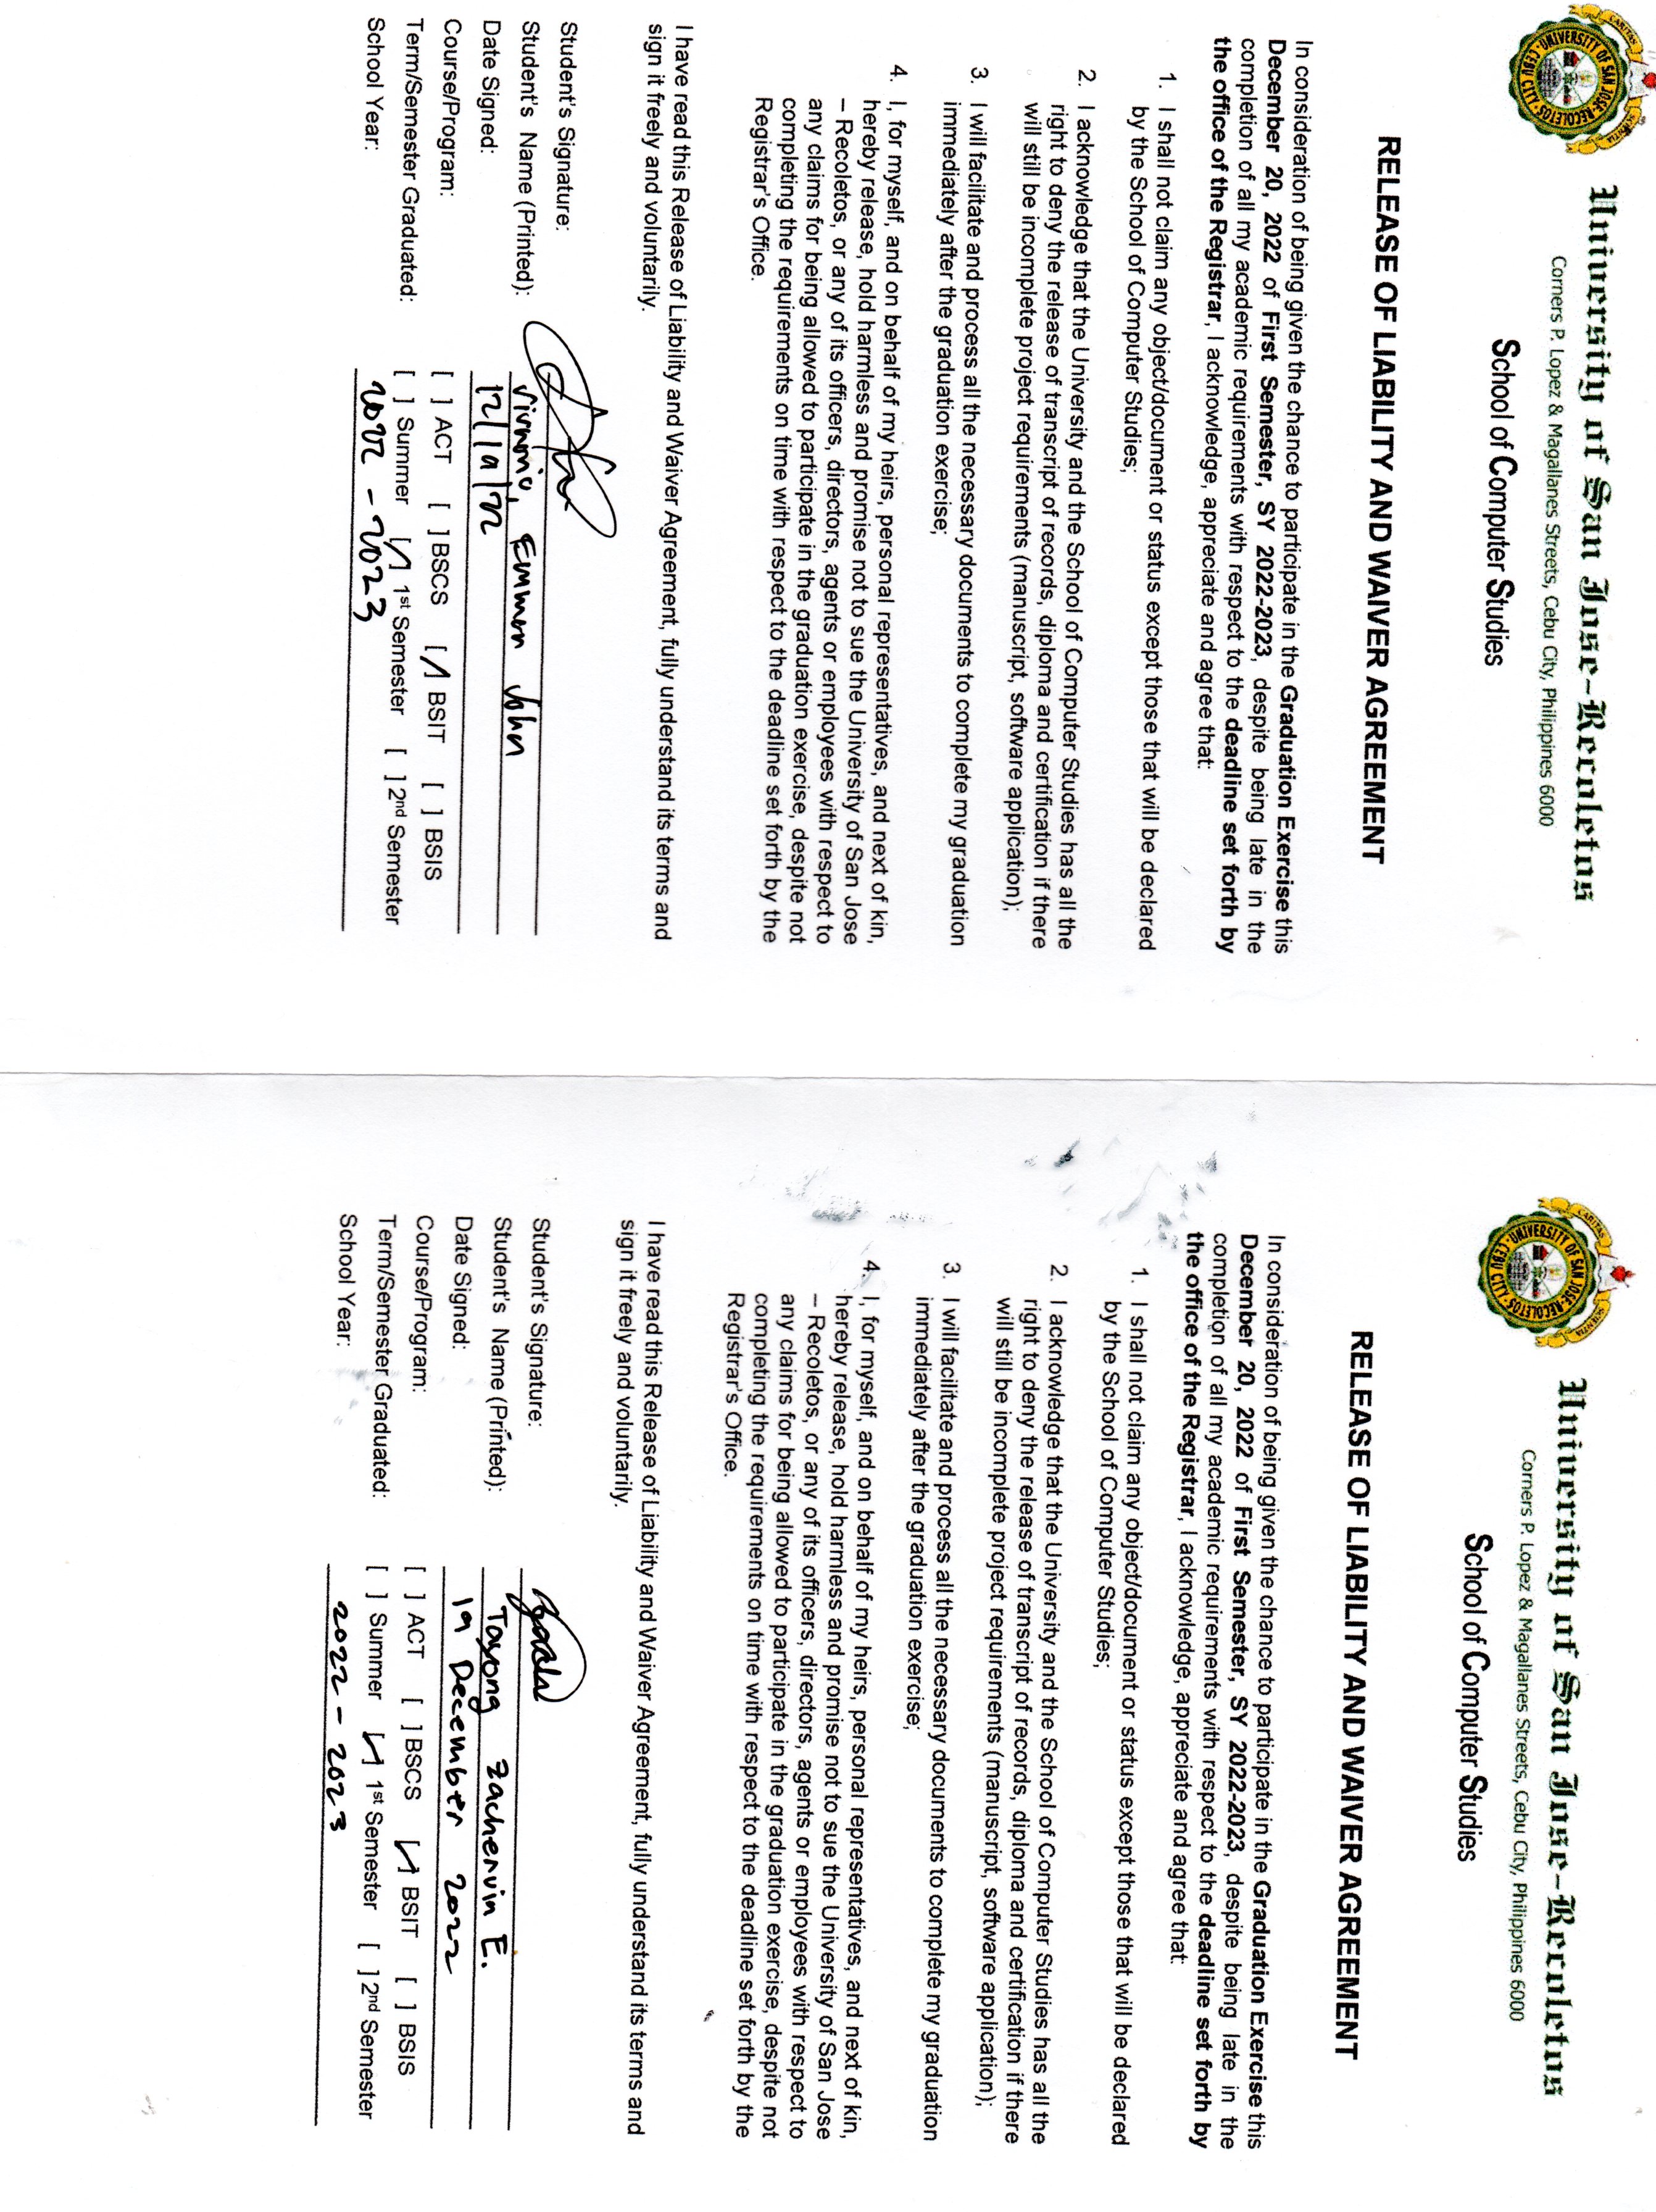 University of San Jose-Recoletos
Corners P. Lopez & Magallanes Streets, Cebu City, Philippines 6000
School of Computer Studies
RELEASE OF LIABILITY AND WAIVER AGREEMENT
In consideration of being given the chance to participate in the Graduation Exercise this
December 20, 2022 of First Semester, SY 2022-2023, despite being late in the
completion of all my academic requirements with respect to the deadline set forth by
the office of the Registrar, I acknowledge, appreciate and agree that:
1. I shall not claim any object/document or status except those that will be declared
by the School of Computer Studies;
2. I acknowledge that the University and the School of Computer Studies has all the
right to deny the release of transcript of records, diploma and certification if there
will still be incomplete project requirements (manuscript, software application);
3. I will facilitate and process all the necessary documents to complete my graduation
immediately after the graduation exercise;
4. I, for myself, and on behalf of my heirs, personal representatives, and next of kin,
hereby release, hold harmless and promise not to sue the University of San Jose
– Recoletos, or any of its officers, directors, agents or employees with respect to
any claims for being allowed to participate in the graduation exercise, despite not
completing the requirements on time with respect to the deadline set forth by the
Registrar's Office.
I have read this Release of Liability and Waiver Agreement, fully understand its terms and
sign it freely and voluntarily.
Student's Signature:
Student's Name (Printed): Emmon John
Date Signed: 12/19/22
Course/Program: [ ] ACT [ ] BSCS [/] BSIT [ ] BSIS
Term/Semester Graduated: [ ] Summer [/] 1st Semester [ ] 2nd Semester
School Year: 2022 - 2023
UNIVERSITY OF SAN JOSE-RECOLETOS
CEBU CITY
CARITAS
SCIENTIA
University of San Jose-Recoletos
Corners P. Lopez & Magallanes Streets, Cebu City, Philippines 6000
School of Computer Studies
RELEASE OF LIABILITY AND WAIVER AGREEMENT
In consideration of being given the chance to participate in the Graduation Exercise this
December 20, 2022 of First Semester, SY 2022-2023, despite being late in the
completion of all my academic requirements with respect to the deadline set forth by
the office of the Registrar, I acknowledge, appreciate and agree that:
1. I shall not claim any object/document or status except those that will be declared
by the School of Computer Studies;
2. I acknowledge that the University and the School of Computer Studies has all the
right to deny the release of transcript of records, diploma and certification if there
will still be incomplete project requirements (manuscript, software application);
3. I will facilitate and process all the necessary documents to complete my graduation
immediately after the graduation exercise;
4. I, for myself, and on behalf of my heirs, personal representatives, and next of kin,
hereby release, hold harmless and promise not to sue the University of San Jose
– Recoletos, or any of its officers, directors, agents or employees with respect to
any claims for being allowed to participate in the graduation exercise, despite not
completing the requirements on time with respect to the deadline set forth by the
Registrar's Office.
I have read this Release of Liability and Waiver Agreement, fully understand its terms and
sign it freely and voluntarily.
Student's Signature:
Student's Name (Printed): Tayong Zachervin E.
Date Signed: 19 December 2022
Course/Program: [ ] ACT [ ] BSCS [/] BSIT [ ] BSIS
Term/Semester Graduated: [ ] Summer [/] 1st Semester [ ] 2nd Semester
School Year: 2022 - 2023
UNIVERSITY OF SAN JOSE-RECOLETOS
CEBU CITY
CARITAS
SCIENTIA